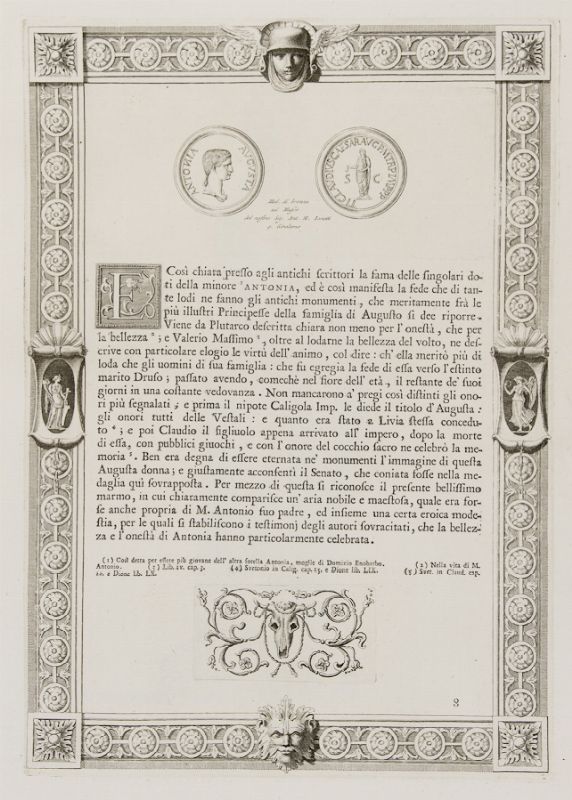 ANTONIA AUGUSTA
TI CLAUDIUS CAESAR AUG P M TR P IMP P P
S C
Med. di bronzo
nel Museo
E Così chiara presso agli antichi scrittori la fama delle singolari do-
ti della minore ¹ ANTONIA, ed è così manifesta la fede che di tan-
te lodi ne fanno gli antichi monumenti, che meritamente frà le
più illustri Principesse della famiglia di Augusto si dee riporre.
Viene da Plutarco descritta chiara non meno per l'onestà, che per
la bellezza ²; e Valerio Massimo ³, oltre al lodarne la bellezza del volto, ne des-
crive con particolare elogio le virtù dell'animo, col dire: ch'ella meritò più di
loda che gli uomini di sua famiglia: che fu egregia la fede di essa verso l'estinto
marito Druso; passato avendo, comechè nel fiore dell'età, il restante de' suoi
giorni in una costante vedovanza. Non mancarono a' pregi così distinti gli ono-
ri più segnalati; e prima il nipote Caligola Imp. le diede il titolo d'Augusta:
gli onori tutti delle Vestali: e quanto era stato a Livia stessa concedu-
to ⁴; e poi Claudio il figliuolo appena arrivato all'impero, dopo la morte
di essa, con pubblici giuochi, e con l'onore del cocchio sacro ne celebrò la me-
moria ⁵. Ben era degna di essere eternata ne' monumenti l'immagine di questa
Augusta donna; e giustamente acconsentì il Senato, che coniata fosse nella me-
daglia quì sovrapposta. Per mezzo di questa si riconosce il presente bellissimo
marmo, in cui chiaramente comparisce un'aria nobile e maestosa, quale era for-
se anche propria di M. Antonio suo padre, ed insieme una certa eroica mode-
stia, per le quali si stabiliscono i testimonj degli autori sovracitati, che la bellez-
za e l'onestà di Antonia hanno particolarmente celebrata.
(1) Così detta per essere più giovane dell'altra sorella Antonia, moglie di Domizio Enobarbo. (2) Nella vita di M.
Antonio. (3) Lib. IV. cap. 3. (4) Suetonio in Calig. cap. 15. e Dione lib. LIX. (5) Suet. in Claud. cap.
11. e Dione lib. LX.
8